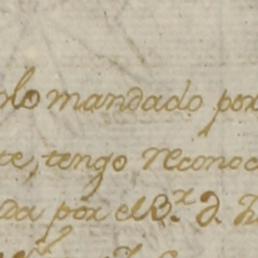 lo mandado por
te, tengo reconoc
da por el B.r d.